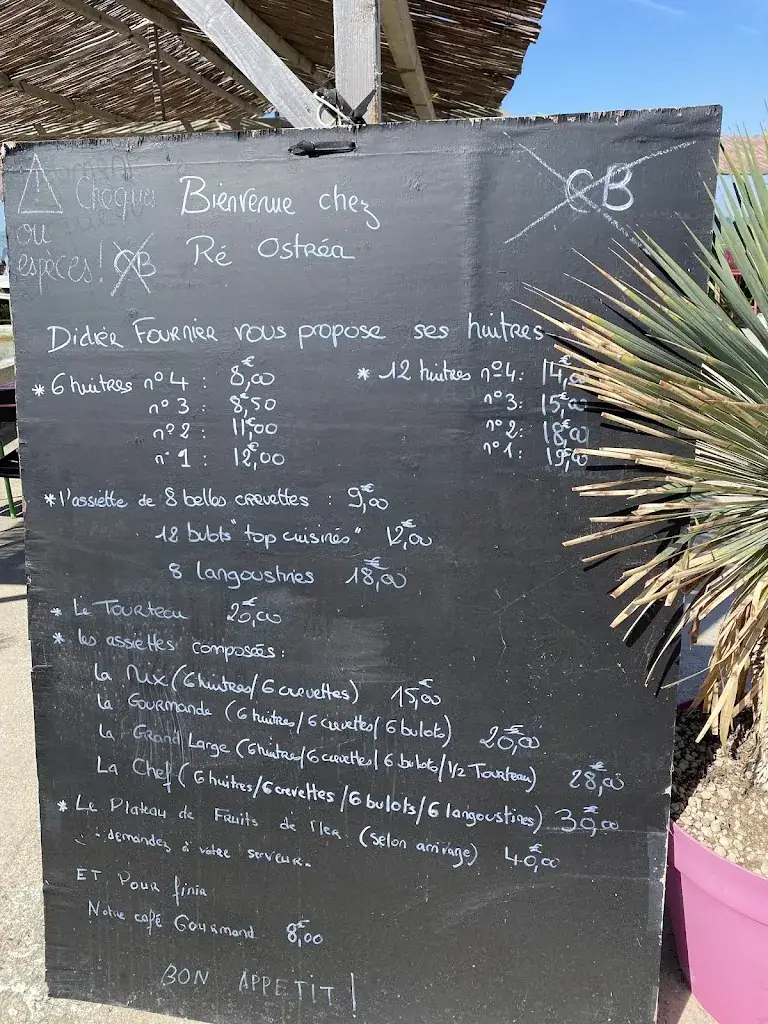 ⚠ Chèques Bienvenue chez CB
ou
espèces! CB Ré Ostréa
Didier Fournier vous propose ses huîtres
* 6 huîtres n°4 : 8,€00 * 12 huîtres n°4 : 14,€00
n°3 : 8,€50 n°3 : 15,€00
n°2 : 11,€00 n°2 : 18,€00
n°1 : 12,€00 n°1 : 19,€
* l'assiette de 8 belles crevettes : 9,€00
12 bulots "top cuisinés" 12,€00
8 langoustines 18,€00
* Le Tourteau 20,€00
* les assiettes composées :
La Mix (6 huîtres/6 crevettes) 15,€00
La Gourmande (6 huîtres/6 crevettes/6 bulots) 20,€00
La Grand Large (6 huîtres/6 crevettes/6 bulots/1/2 Tourteau) 28,€00
La Chef (6 huîtres/6 crevettes/6 bulots/6 langoustines) 30,€00
* Le Plateau de Fruits de Mer (selon arrivage) 40,€00
demandez à votre serveur.
ET Pour finir
Notre café Gourmand 8,€00
BON APPETIT !